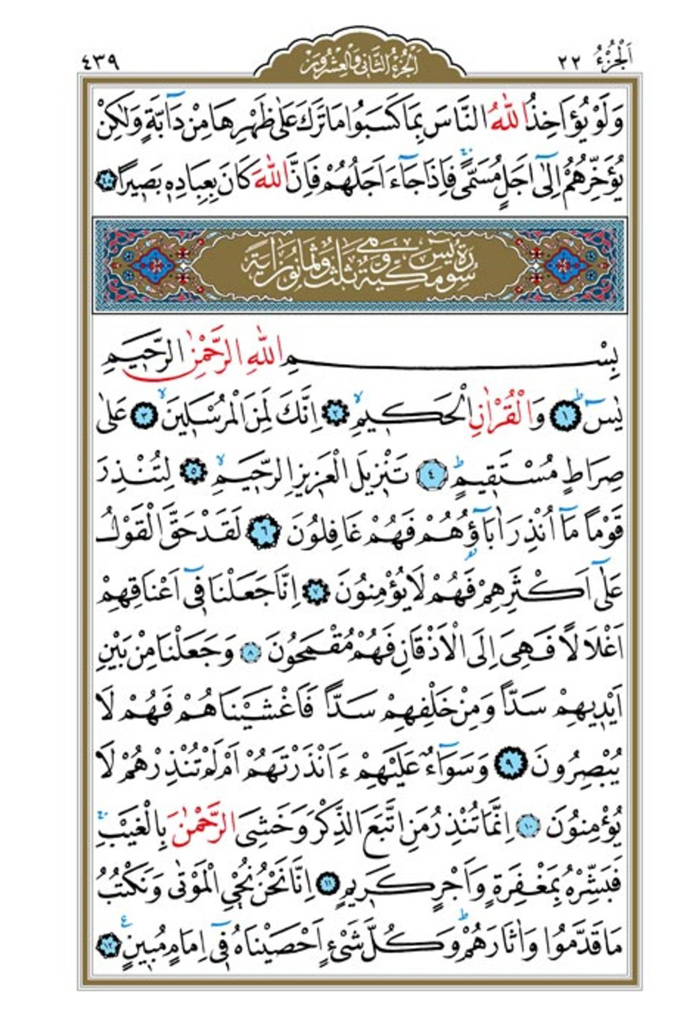 اَلْجُزْءُ ٢٢
اَلْجُزْءُ الثَّانِي وَالْعِشْرُونَ
٤٣٩
وَلَوْ يُؤَاخِذُ اللّٰهُ النَّاسَ بِمَا كَسَبُوا مَا تَرَكَ عَلٰى ظَهْرِهَا مِنْ دَٓابَّةٍ وَلٰكِنْ
يُؤَخِّرُهُمْ اِلٰٓى اَجَلٍ مُسَمًّىۚ فَاِذَا جَٓاءَ اَجَلُهُمْ فَاِنَّ اللّٰهَ كَانَ بِعِبَادِه۪ بَص۪يراً ﴿٤٥﴾
سُورَةُ يٰسٓ مَكِّيَّةٌ وَهِيَ ثَلٰثٌ وَثَمَانُونَ اٰيَةً
بِسْمِ اللّٰهِ الرَّحْمٰنِ الرَّح۪يمِ
يٰسٓۜ ﴿١﴾ وَالْقُرْاٰنِ الْحَك۪يمِۙ ﴿٢﴾ اِنَّكَ لَمِنَ الْمُرْسَل۪ينَۙ ﴿٣﴾ عَلٰى
صِرَاطٍ مُسْتَق۪يمٍۜ ﴿٤﴾ تَنْز۪يلَ الْعَز۪يزِ الرَّح۪يمِۙ ﴿٥﴾ لِتُنْذِرَ
قَوْماً مَٓا اُنْذِرَ اٰبَٓاؤُ۬هُمْ فَهُمْ غَافِلُونَ ﴿٦﴾ لَقَدْ حَقَّ الْقَوْلُ
عَلٰٓى اَكْثَرِهِمْ فَهُمْ لَا يُؤْمِنُونَ ﴿٧﴾ اِنَّا جَعَلْنَا ف۪ٓي اَعْنَاقِهِمْ
اَغْلَالاً فَهِيَ اِلَى الْاَذْقَانِ فَهُمْ مُقْمَحُونَ ﴿٨﴾ وَجَعَلْنَا مِنْ بَيْنِ
اَيْد۪يهِمْ سَداًّ وَمِنْ خَلْفِهِمْ سَداًّ فَاَغْشَيْنَاهُمْ فَهُمْ لَا
يُبْصِرُونَ ﴿٩﴾ وَسَوَٓاءٌ عَلَيْهِمْ ءَاَنْذَرْتَهُمْ اَمْ لَمْ تُنْذِرْهُمْ لَا
يُؤْمِنُونَ ﴿١٠﴾ اِنَّمَا تُنْذِرُ مَنِ اتَّبَعَ الذِّكْرَ وَخَشِيَ الرَّحْمٰنَ بِالْغَيْبِۚ
فَبَشِّرْهُ بِمَغْفِرَةٍ وَاَجْرٍ كَر۪يمٍ ﴿١١﴾ اِنَّا نَحْنُ نُحْيِ الْمَوْتٰى وَنَكْتُبُ
مَا قَدَّمُوا وَاٰثَارَهُمْۜ وَكُلَّ شَيْءٍ اَحْصَيْنَاهُ ف۪ٓي اِمَامٍ مُب۪ينٍ۟ ﴿١٢﴾